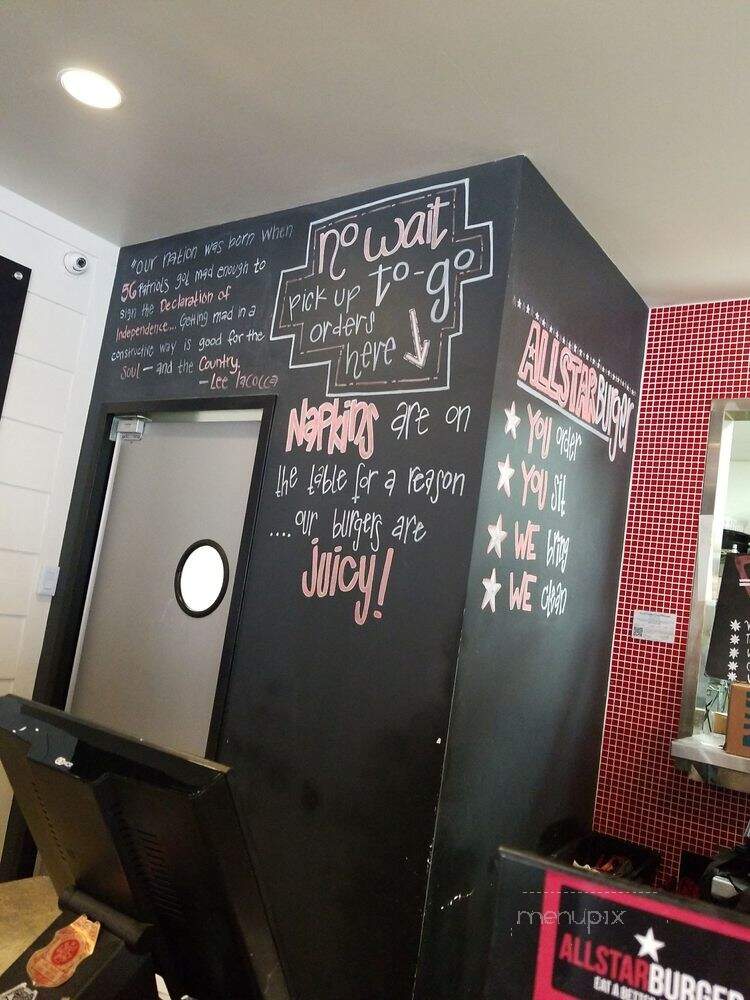 "Our nation was born when
56 Patriots got mad enough to
sign the Declaration of
Independence... Getting mad in a
constructive way is good for the
Soul — and the Country.
— Lee Iacocca
no wait
pick up to-go
orders
here
Napkins are on
the table for a reason
....our burgers are
juicy!
ALLSTARBURGER
YOU order
YOU sit
WE bring
WE clean
menupix
ALLSTARBURGER